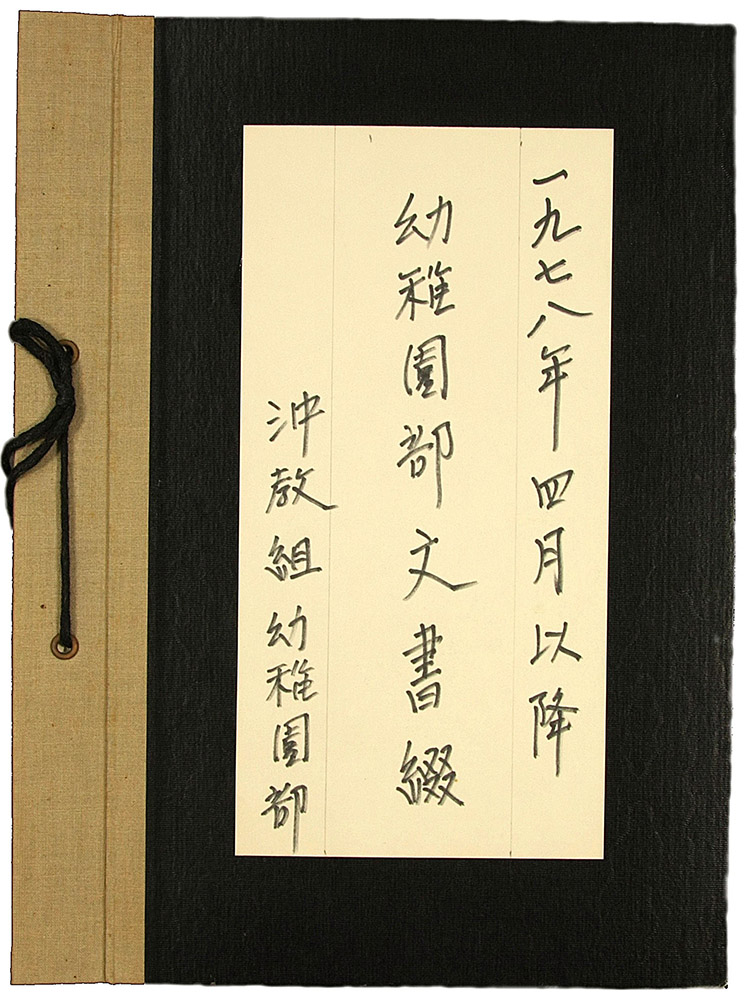 一九七八年四月以降
幼稚園部文書綴
沖教組幼稚園部